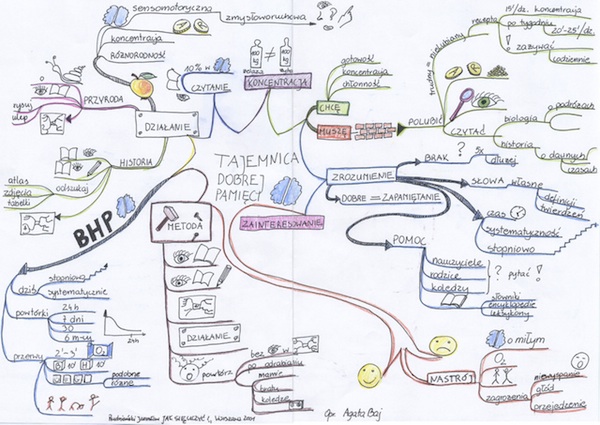 sensomotoryczna
zmysłoworuchowa
koncentracja
RÓŻNORODNOŚĆ
PRZYRODA
rysuj
ulep
DZIAŁANIE
HISTORIA
atlas
zdjęcia
tabelki
odszukaj
10% w
CZYTANIE
KONCENTRACJA
100 kg
≠
100 kg
gotowość
koncentracja
chłonność
CHCĘ
MUSZĘ
POLUBIĆ
trudny = nielubiany
recepta
15'/dz. koncentracja
po tygodniu
20'-25'/dz.
! zażywać
codziennie
CZYTAĆ
biologia
o podróżach
historia
o dawnych
czasach
TAJEMNICA
DOBREJ
PAMIĘCI
ZAINTERESOWANIE
ZROZUMIENIE
BRAK
?
5x
dłużej
SŁOWA
własne
definicji
twierdzeń
DOBRE = ZAPAMIĘTANIE
czas
systematyczność
stopniowo
POMOC
nauczyciele
rodzice
koledzy
? pytać !
słowniki
encyklopedie
leksykony
BHP
dziś
stopniowo
systematycznie
powtórki
24h
7 dni
30
6 m-cy
24h
przerwy
2'-5'
O2
10'
10'
podobne
różne
METODA
DZIAŁANIE
powtórz
bez
w
po odrabianiu
mamie
bratu
koledze
NASTRÓJ
o miłym
O2
zagrożenia
niewyspanie
głód
przejedzenie
Opr. Agata Baj